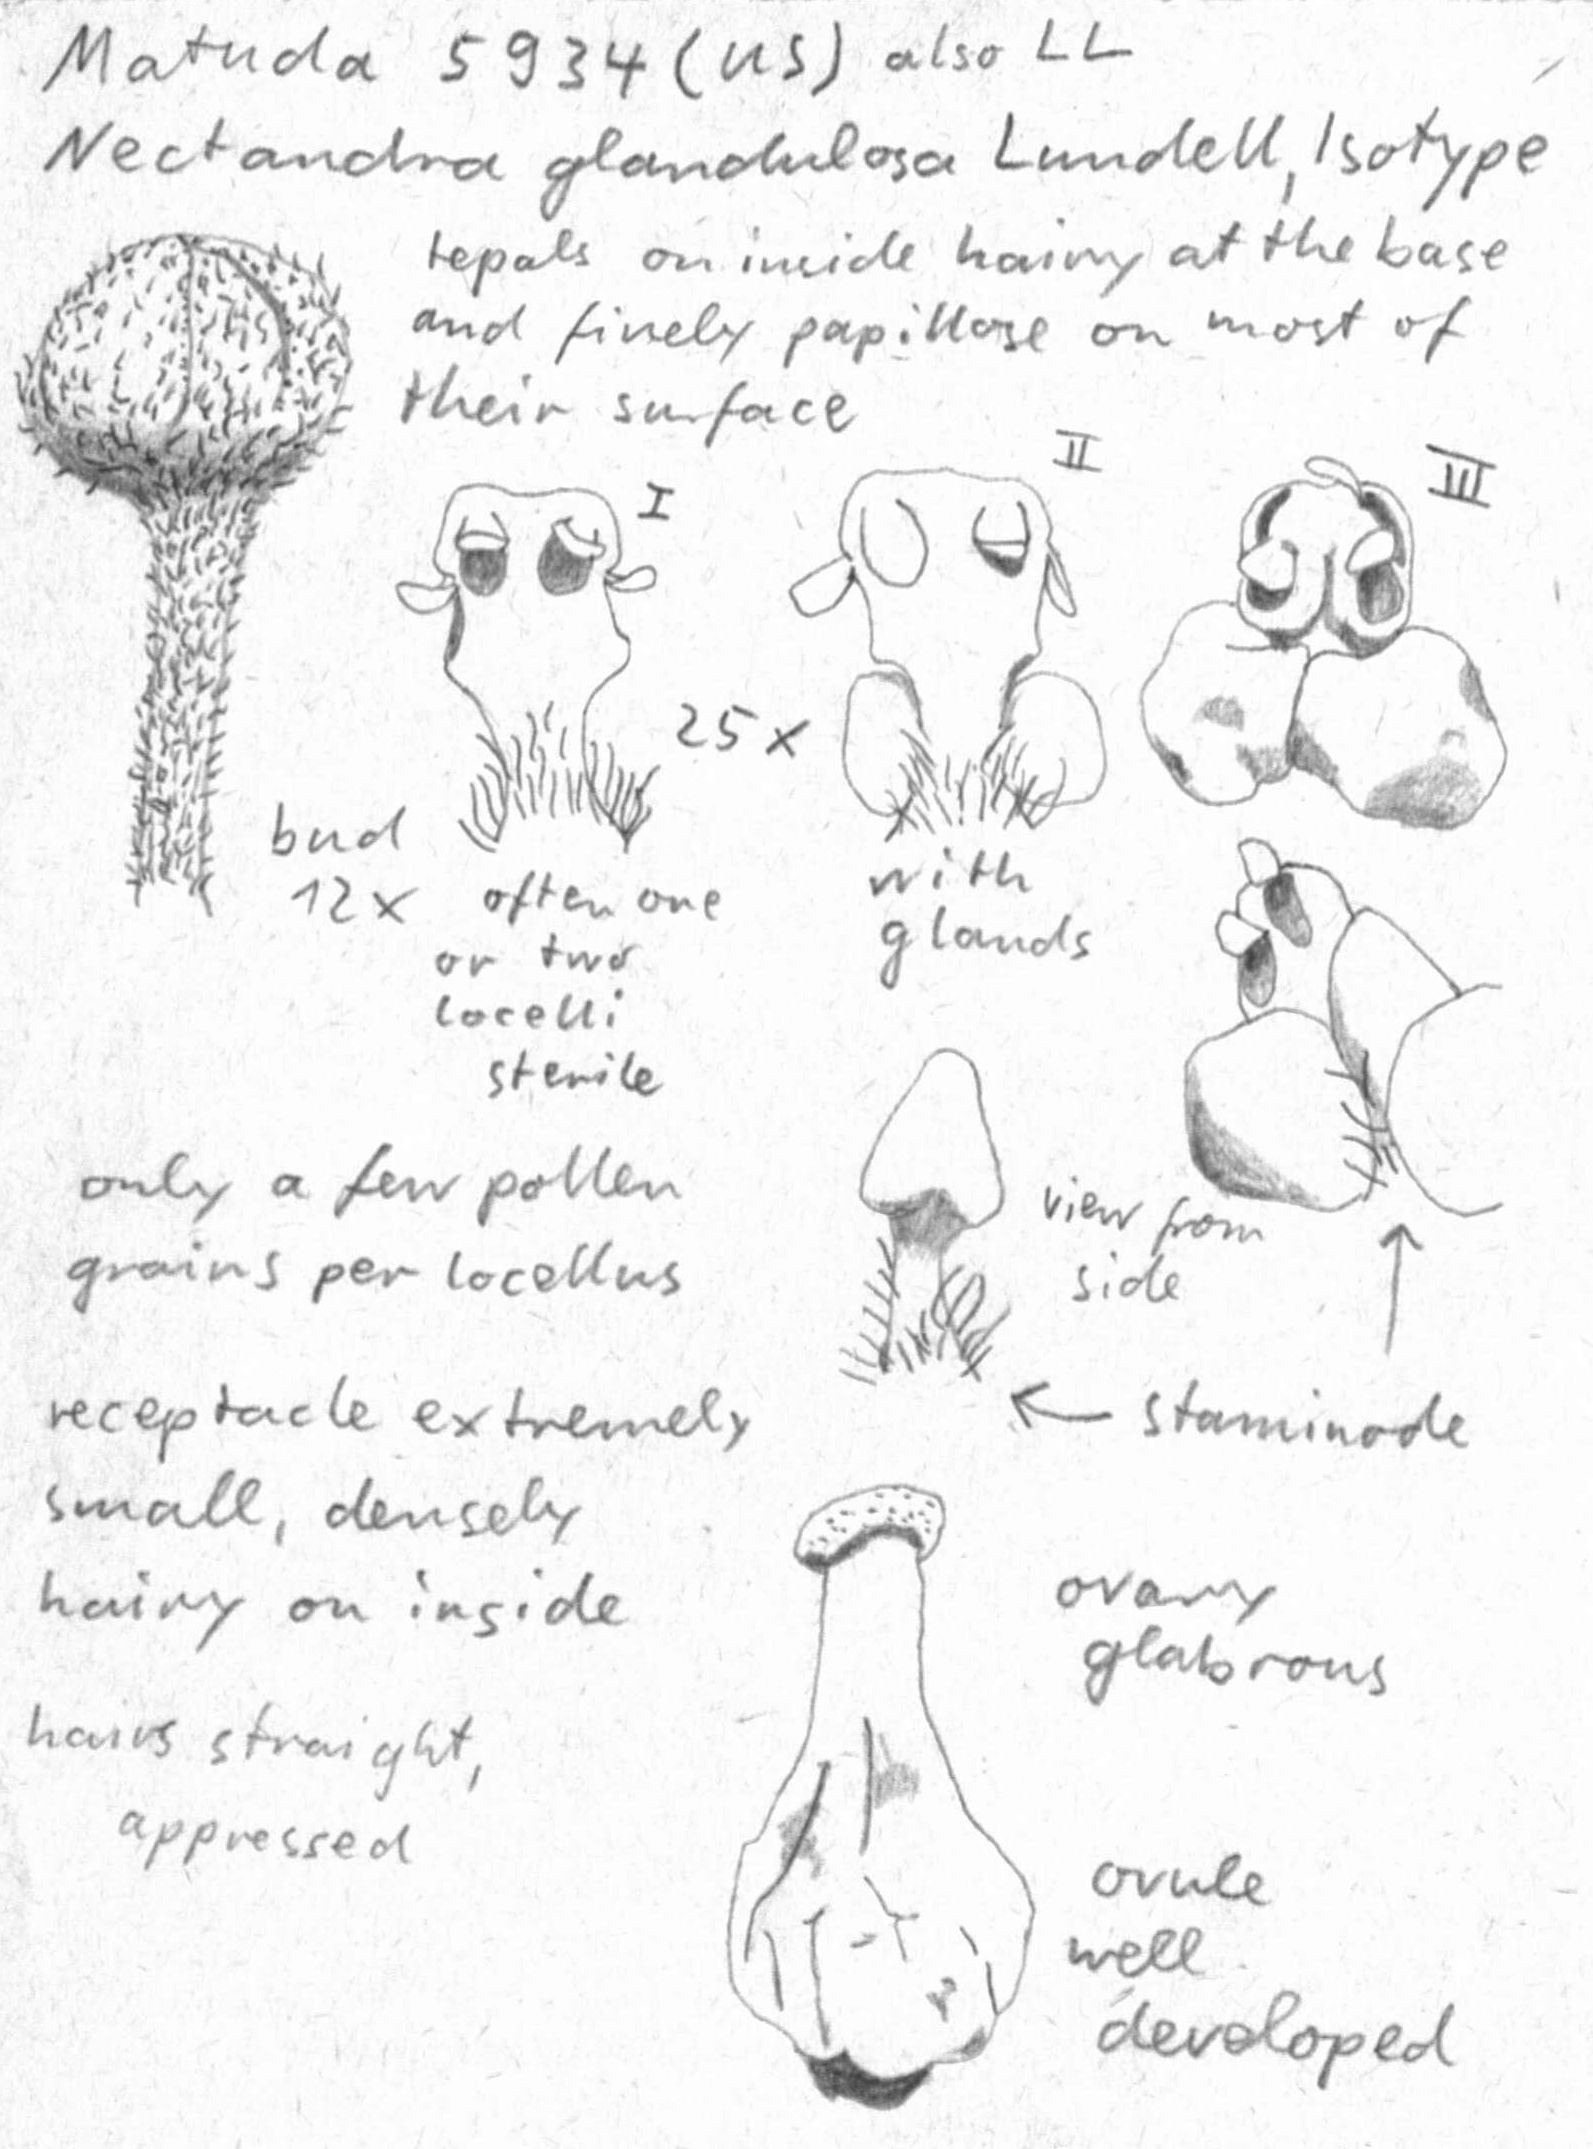 Matuda 5934 (US) also LL
Nectandra glandulosa Lundell, Isotype
tepals on inside hairy at the base
and finely papillose on most of
their surface
I
II
III
25 x
bud
12 x
often one
or two
locelli
sterile
with
glands
only a few pollen
grains per locellus
view from
side
receptacle extremely
small, densely
hairy on inside
← staminode
hairs straight,
appressed
ovary
glabrous
ovule
well
developed